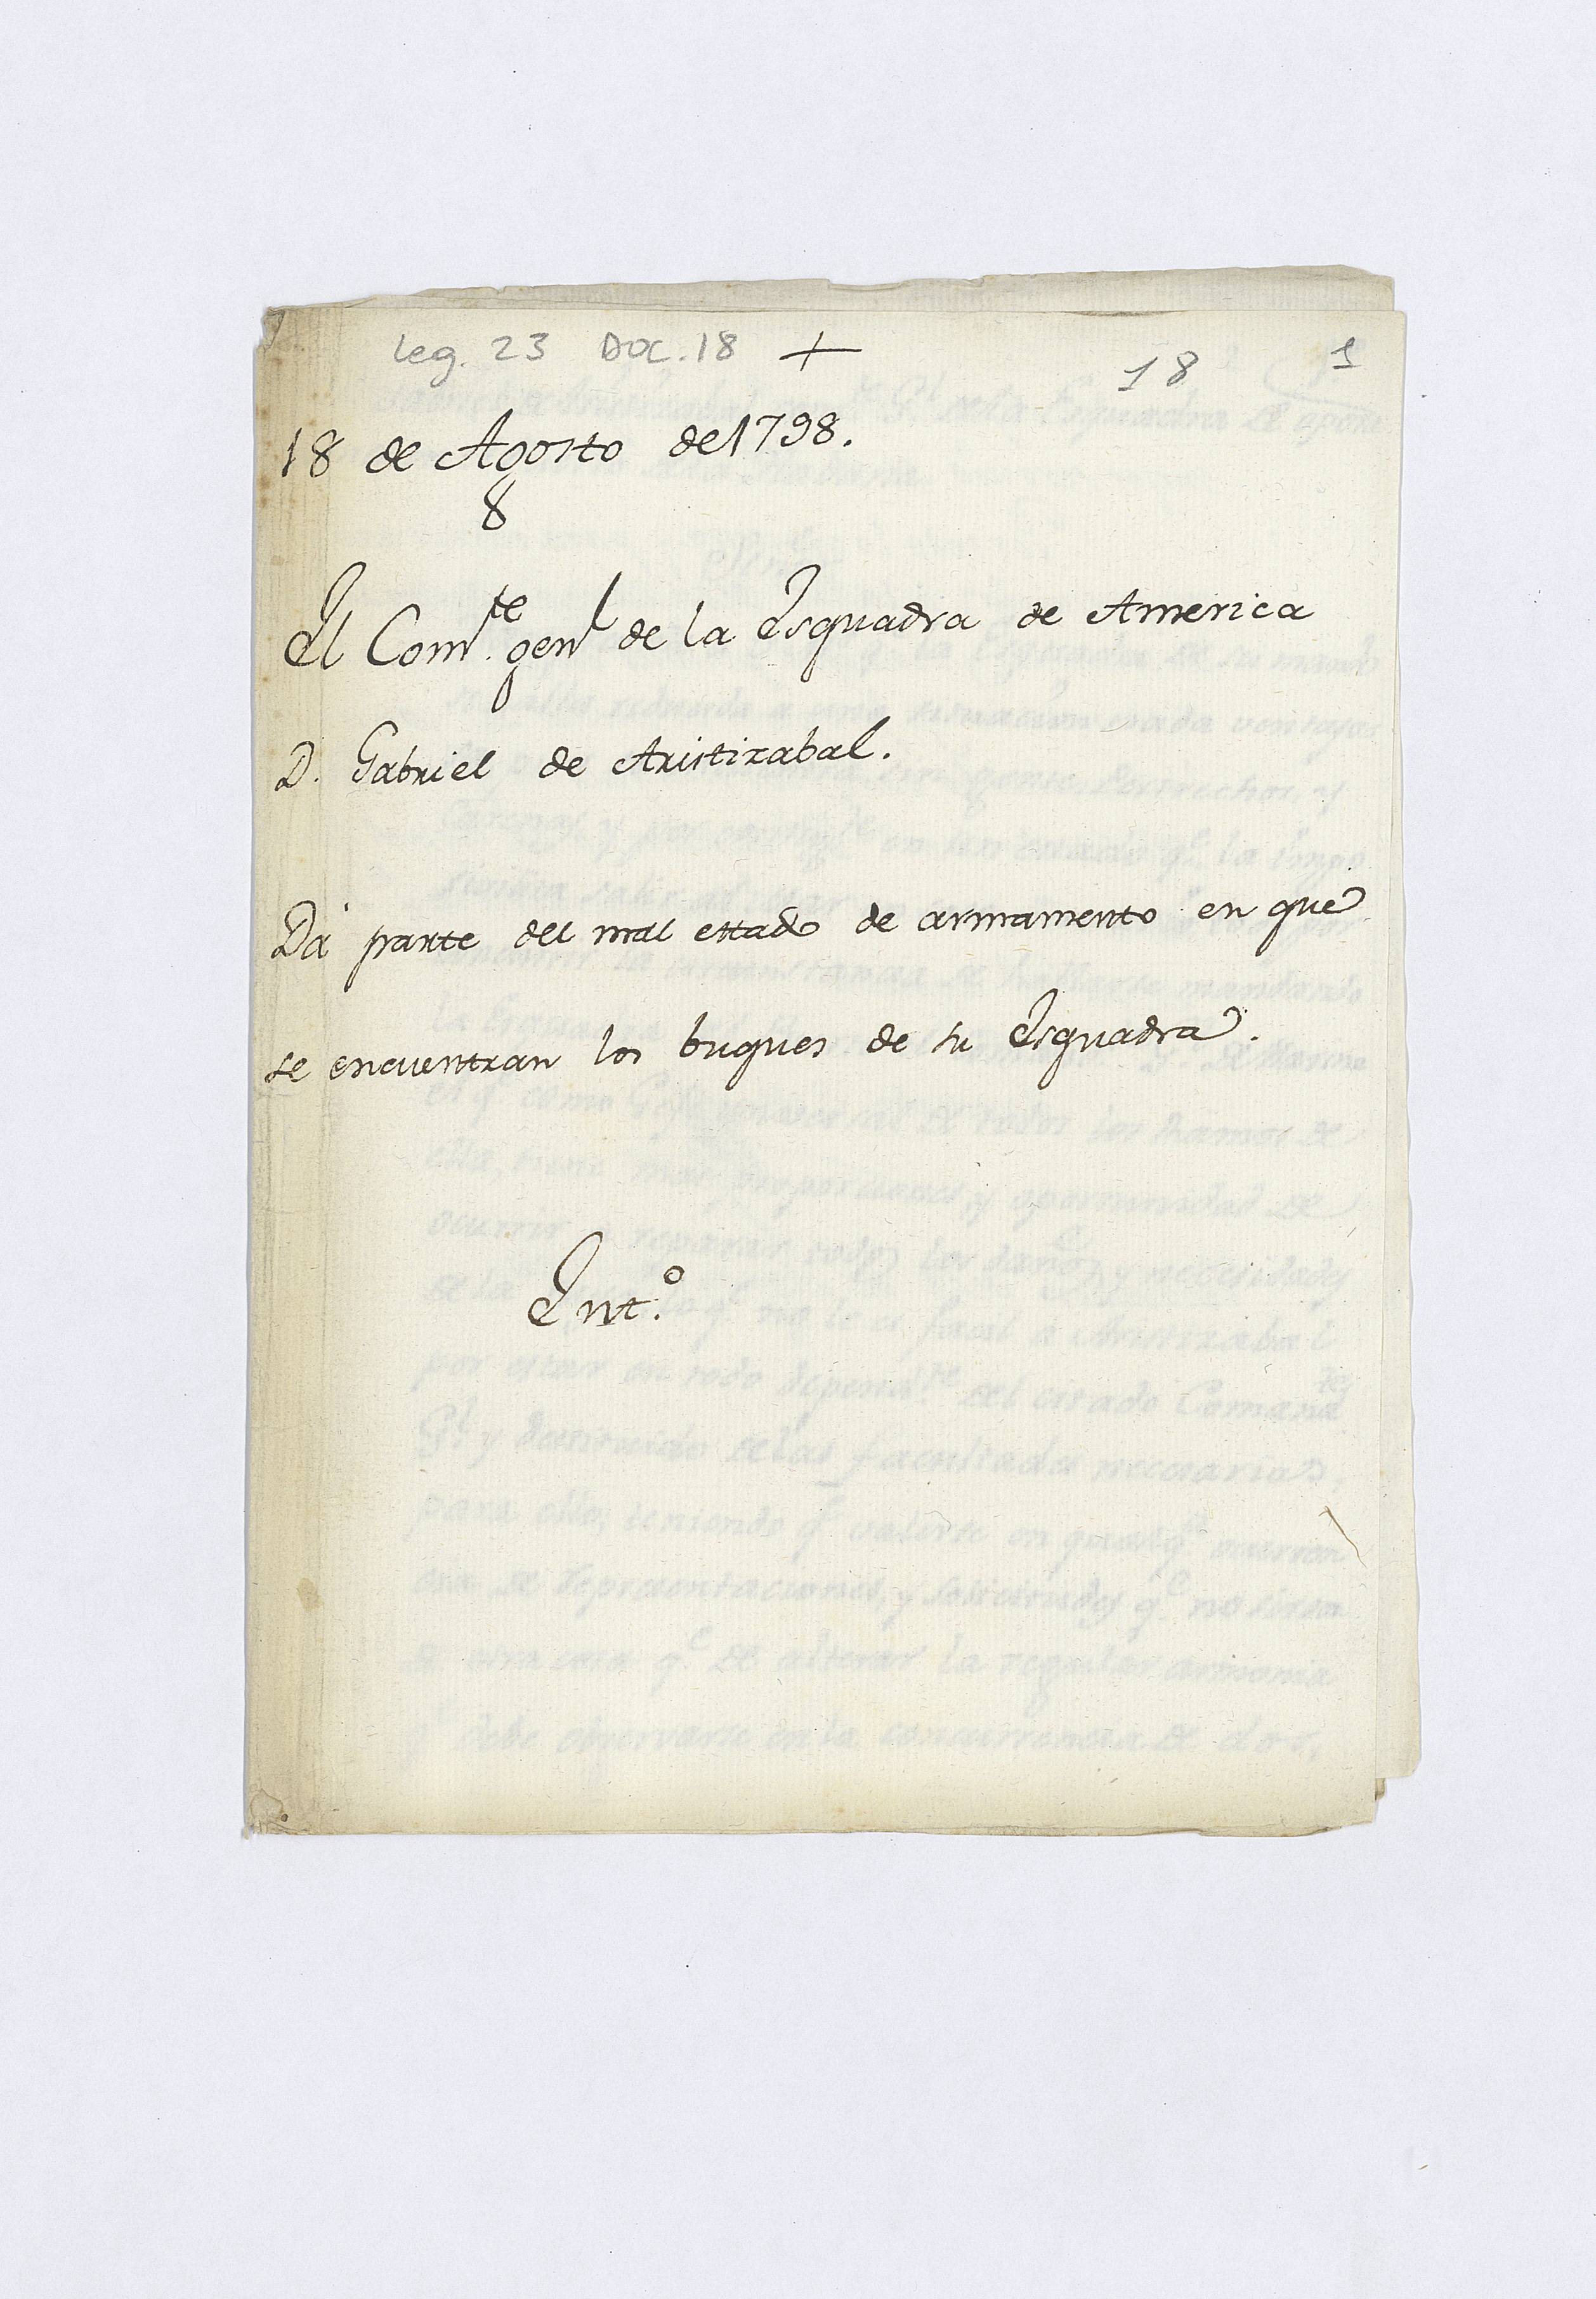 leg. 23 DOC. 18 +
18 1
18 de Agosto de 1798.
8
El Com.te gen.l de la Esquadra de America
D. Gabriel de Aristizabal.
Dá parte del mal estado de armamento en que
se encuentran los buques de su Esquadra.
Ent.o